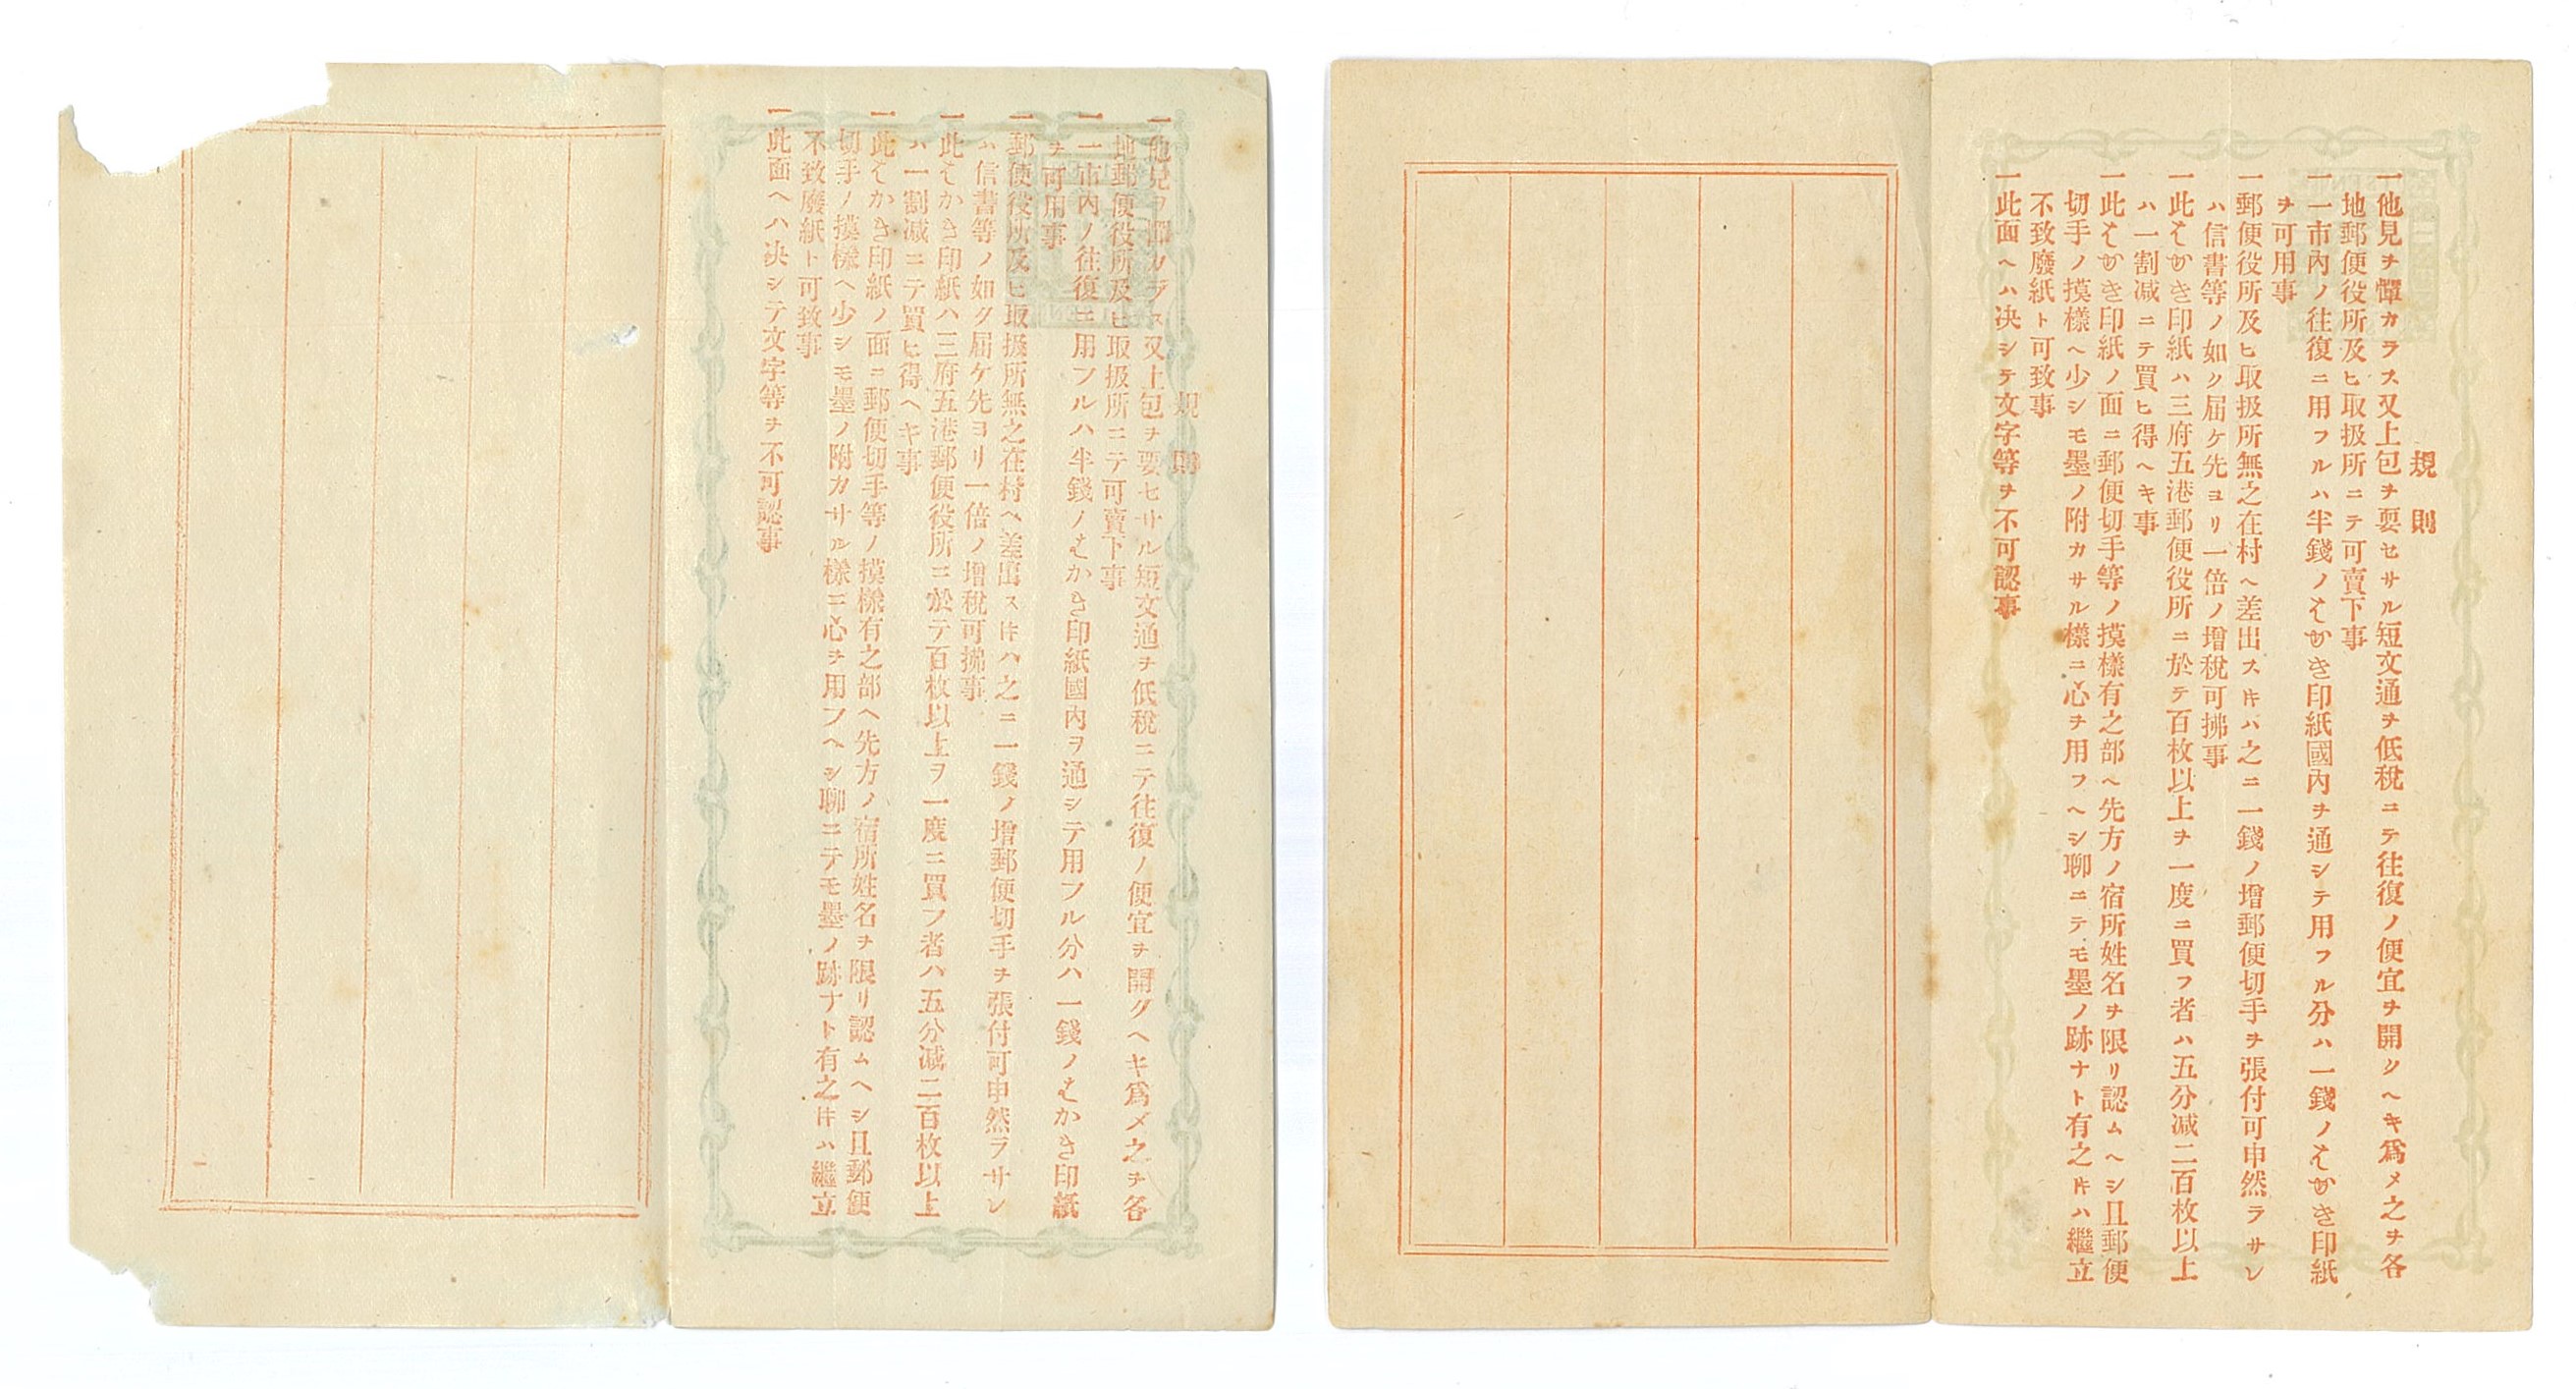 規則
一他見ヲ憚カラス又上包ヲ要セサル短文通ヲ低稅ニテ往復ノ便宜ヲ開クヘキ爲メ之ヲ各
地郵便役所及ヒ取扱所ニテ可賣下事
一一市內ノ往復ニ用フルハ半錢ノはかき印紙國內ヲ通シテ用フル分ハ一錢ノはかき印紙
ヲ可用事
一郵便役所及ヒ取扱所無之在村ヘ差出ストキハ之ニ一錢ノ增郵便切手ヲ張付可申然ラサレ
ハ信書等ノ如ク届ケ先ヨリ一倍ノ增稅可拂事
一此はかき印紙ハ三府五港郵便役所ニ於テ百枚以上ヲ一度ニ買フ者ハ五分減二百枚以上
ハ一割減ニテ買ヒ得ヘキ事
一此はかき印紙ノ面ニ郵便切手等ノ摸樣有之部ヘ先方ノ宿所姓名ヲ限リ認ムヘシ且郵便
切手ノ摸樣ヘ少シモ墨ノ附カサル樣ニ心ヲ用フヘシ聊ニテモ墨ノ跡ナト有之トキハ繼立
不致廢紙ト可致事
一此面ヘハ決シテ文字等ヲ不可認事
規則
一他見ヲ憚カラス又上包ヲ要セサル短文通ヲ低稅ニテ往復ノ便宜ヲ開クヘキ爲メ之ヲ各
地郵便役所及ヒ取扱所ニテ可賣下事
一一市內ノ往復ニ用フルハ半錢ノはかき印紙國內ヲ通シテ用フル分ハ一錢ノはかき印紙
ヲ可用事
一郵便役所及ヒ取扱所無之在村ヘ差出ストキハ之ニ一錢ノ增郵便切手ヲ張付可申然ラサレ
ハ信書等ノ如ク届ケ先ヨリ一倍ノ增稅可拂事
一此はかき印紙ハ三府五港郵便役所ニ於テ百枚以上ヲ一度ニ買フ者ハ五分減二百枚以上
ハ一割減ニテ買ヒ得ヘキ事
一此はかき印紙ノ面ニ郵便切手等ノ摸樣有之部ヘ先方ノ宿所姓名ヲ限リ認ムヘシ且郵便
切手ノ摸樣ヘ少シモ墨ノ附カサル樣ニ心ヲ用フヘシ聊ニテモ墨ノ跡ナト有之トキハ繼立
不致廢紙ト可致事
一此面ヘハ決シテ文字等ヲ不可認事